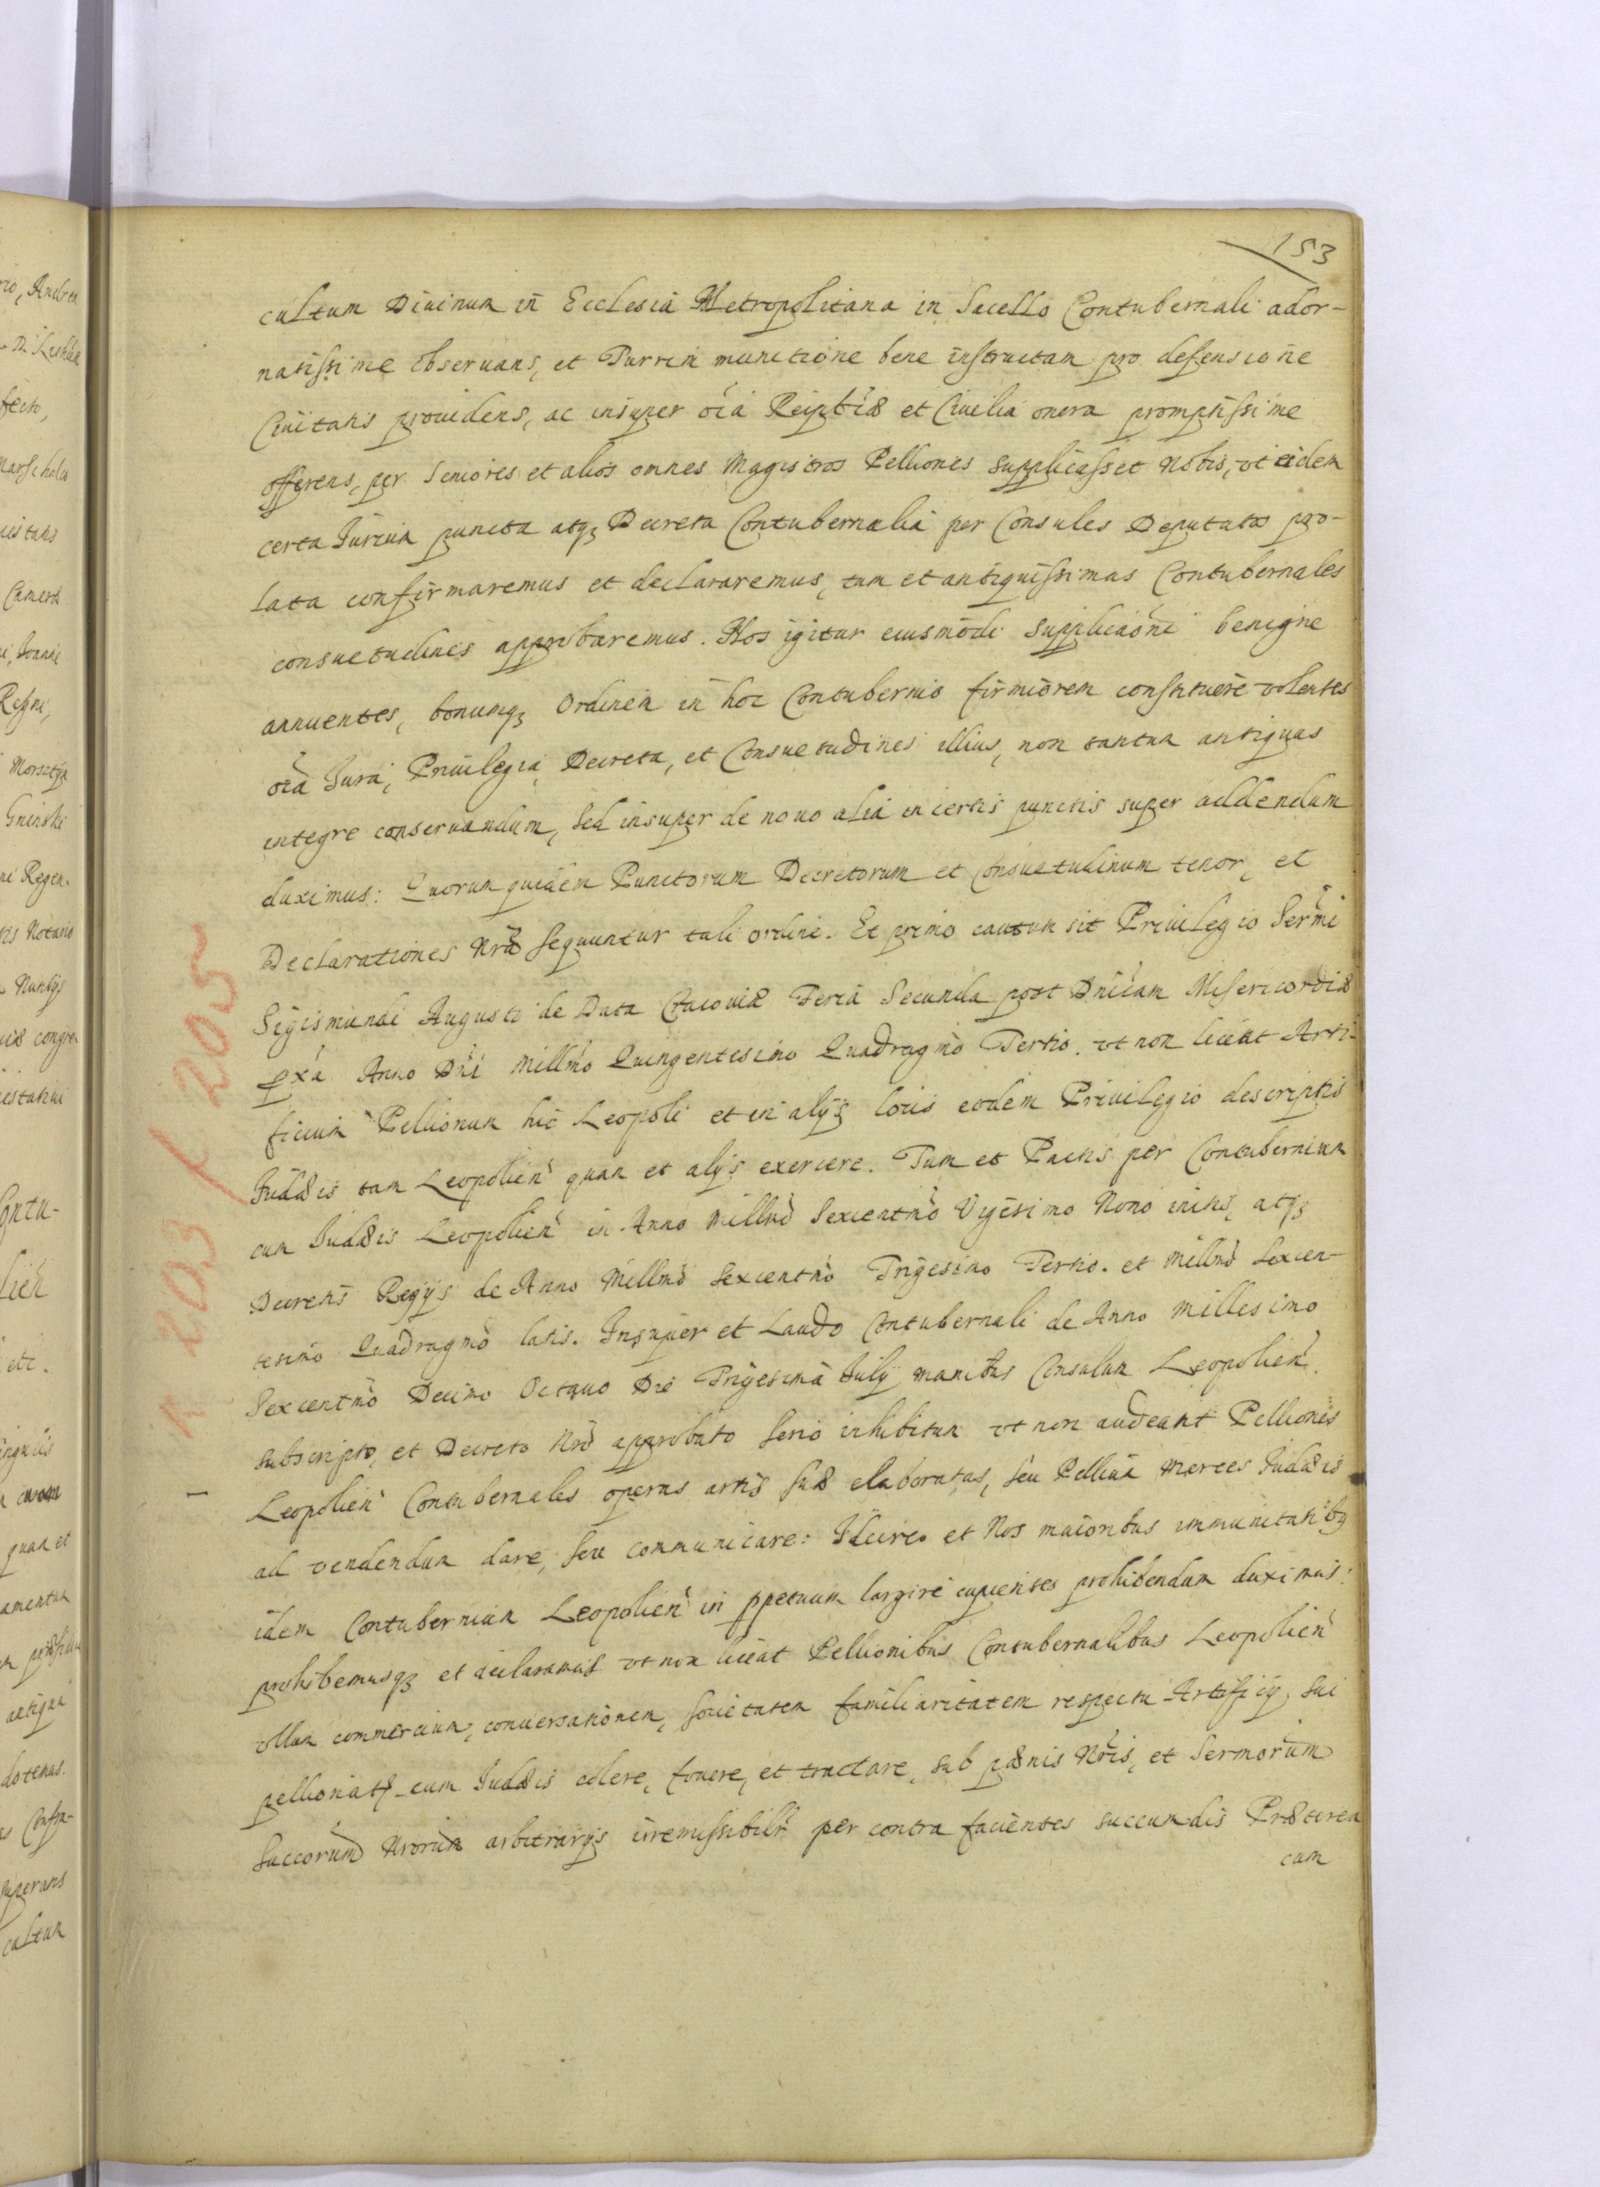 153
cultum Diuinum in Ecclesia Metropolitana in Sacello Contubernali ador-
natissime obseruans, et Turrim munitione bene instructam pro defensione
Ciuitatis prouidens, ac insuper oĩa Reiptĩæ et Ciuilia onera promptissime
offerens, per Seniores et alios omnes Magistros Pelliones supplicasset Nobis, vt eidem
certa Iurium puncta atqȝ Decreta Contubernalia per Consules Deputatos pro-
lata confirmaremus et declararemus, tum et antiquissimas Contubernales
consuetudines approbaremus. Nos igitur eiusmodi supplicaõni benigne
annuentes, bonumqȝ Ordinem in hoc Contubernio firmiorem constituere volentes
oĩa Iura, Priuilegia, Decreta, et Consuetudines illius, non tantum antiquas
integre conseruandum, sed insuper de nouo alia in certis punctis super addendum
duximus: Quorum quidem Punctorum Decretorum et Consuetudinum tenor, et
Declarationes Nræ sequuntur tali ordine. Et primo cautum sit Priuilegio Serm̃i
Sigismundi Augusti de Data Cracouiæ Feria Secunda post Dnĩcam Misericordiæ
pxa Anno Dnĩ Millm̃o Quingentesimo Quadragm̃o Tertio. vt non liceat Arti-
ficium Pellionum hic Leopoli et in alijs locis eodem Priuilegio descriptis
Iudæis tam Leopolien̄ quam et alijs exercere. Tum et Pactis per Contubernium
cum Iudæis Leopolien̄ in Anno Millm̃o Sexcentm̃o Vigesimo Nono initis, atqȝ
Decretis Regijs de Anno Millm̃o Sexcentm̃o Trigesimo Tertio. et Millm̃o Sexcen-
tesimo Quadragm̃o latis. Insuper et Laudo Contubernali de Anno Millesimo
Sexcentm̃o Decimo Octauo Die Trigesima Iulij manibus Consulum Leopolien̄
subscripto, et Decreto Nrõ approbato serio inhibitum vt non audeant Pelliones
Leopolien̄ Contubernales operas artis suæ elaboratas, seu Pellicia merces Iudæis
ad vendendum dare, seu communicare: Idcirco et Nos maioribus immunitatibȝ
idem Contubernium Leopolien̄ in ppetuum largire cupientes prohibendum duximus:
prohibemusqȝ et declaramus vt non liceat Pellionibus Contubernalibus Leopolien̄
vllum commercium, conuersationem, societatem familiaritatem respectu Artificij sui
cum Iudæis colere, fouere, et tractare, sub pænis Nrĩs, et Sermorum
Succorum Nrorum arbitrarijs irremissibilr̃ per contra facientes succumdis Præterea
cum
203 / 205